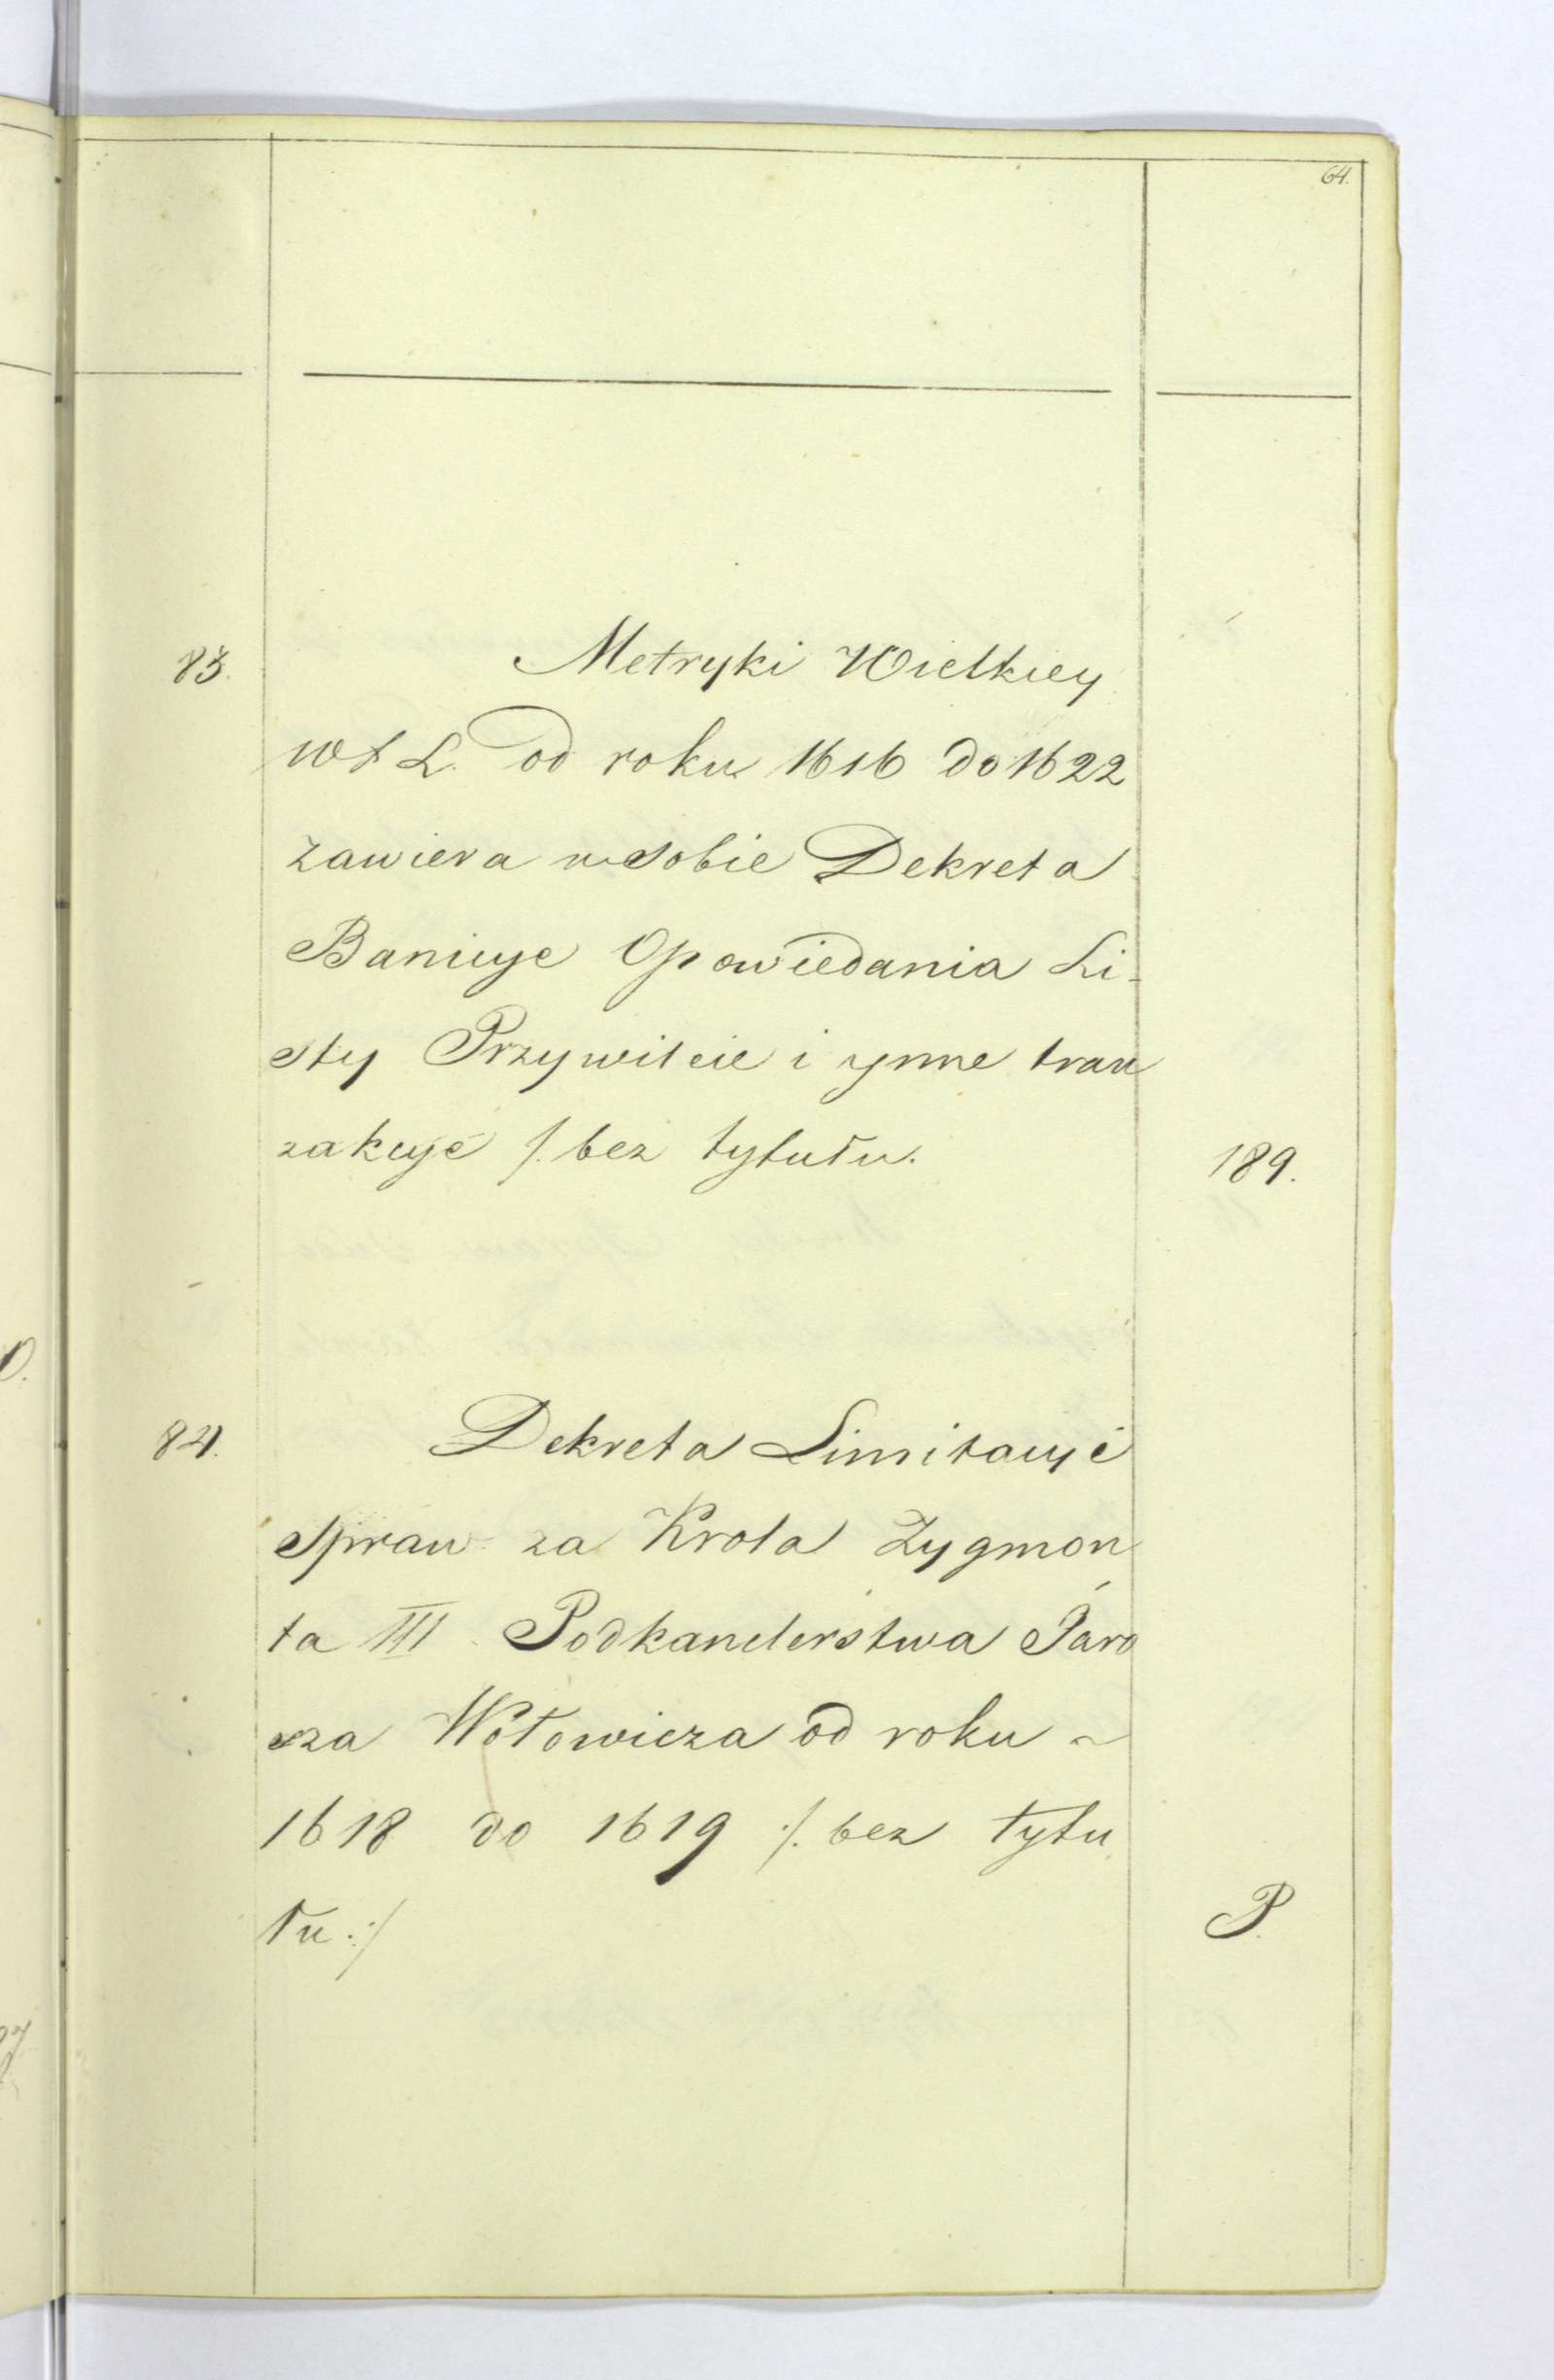 64.
83. Metryki Wielkiey
W X L. od roku 1616 do 1622
zawiera w sobie Dekreta
Banicye Opowiedania Li-
sty Przywileie i ynne tran
zakcye /. bez tytułu.
189.
84. Dekreta Limitacye
spraw za Krola Zygmon
ta III Podkanclerstwa Jaro
sza Wołowicza od roku ~
1618 do 1619 /. bez tytu
łu :/
P.